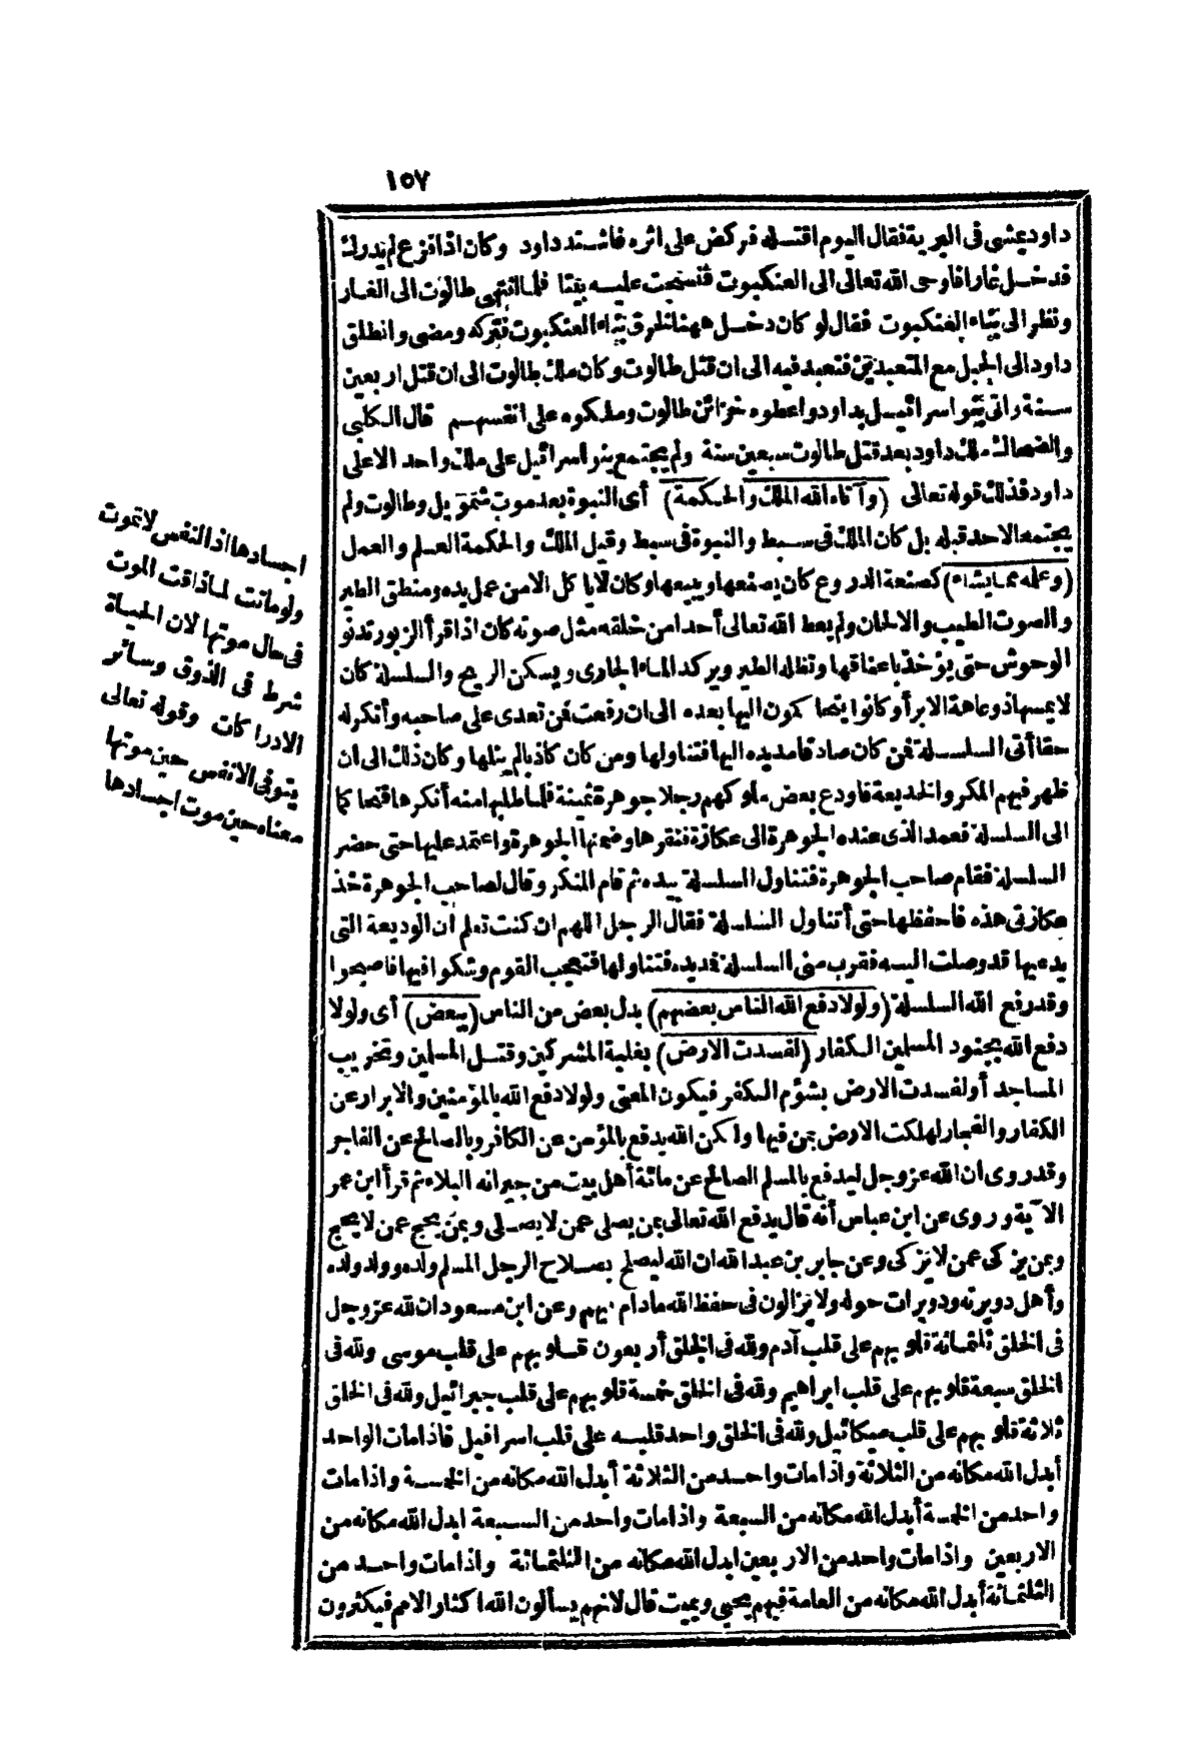 ١٥٧
داود يمشى فى البرية فقال اليوم اقتله فركض على اثره فاشتد داود وكان اذا فزع لم يدرك
فدخل غارا فاوحى الله تعالى الى العنكبوت فنسجت عليه بيتا فلما انتهى طالوت الى الغار
ونظر الى بناء العنكبوت فقال لو كان دخل ههنا لخرق بناء العنكبوت فتركه ومضى وانطلق
داود الى الجبل مع المتعبدين فتعبد فيه الى ان قتل طالوت وكان ملك طالوت الى ان قتل اربعين
سنة واتى بنو اسرائيل بداود واعطوه خزائن طالوت وملكوه على انفسهم قال الكلبى
والضحاك ملك داود بعد قتل طالوت سبعين سنة ولم يجتمع بنو اسرائيل على ملك واحد الا على
داود فذلك قوله تعالى (وآتاه الله الملك والحكمة) أى النبوة بعد موت شمويل وطالوت ولم
يجتمعا لاحد قبله بل كان الملك فى سبط والنبوة فى سبط وقيل الملك والحكمة العلم والعمل
(وعلمه مما يشاء) كصنعة الدروع كان يصنعها ويبيعها وكان لا يأكل الا من عمل يده ومنطق الطير
والصوت الطيب والالحان ولم يعط الله تعالى أحدا من خلقه مثل صوته كان اذا قرأ الزبور تدنو
الوحوش حتى يؤخذ باعناقها وتظله الطير ويركد الماء الجارى ويسكن الريح والسلسلة كان
لا يمسها ذو عاهة الا برأ وكانوا يتحاكمون اليها بعده الى ان رفعت فمن تعدى على صاحبه وأنكر له
حقا أتى السلسلة فمن كان صادقا مد يده اليها فتناولها ومن كان كاذبا لم ينلها وكان ذلك الى ان
ظهر فيهم المكر والخديعة فاودع بعض ملوكهم رجلا جوهرة ثمينة فلما طلبها منه أنكرها فتحاكما
الى السلسلة فعمد الذى عنده الجوهرة الى عكازة فنقرها وضمنها الجوهرة واعتمد عليها حتى حضر
السلسلة فقام صاحب الجوهرة فتناول السلسلة بيده ثم قام المنكر وقال لصاحب الجوهرة خذ
عكازتى هذه فاحفظها حتى أتناول السلسلة فقال الرجل اللهم ان كنت تعلم ان الوديعة التى
يدعيها قد وصلت اليه فقرب منى السلسلة فمد يده فتناولها فتعجب القوم وشكوا فيها فاصبحوا
وقد رفع الله السلسلة (ولولا دفع الله الناس بعضهم) بدل بعض من الناس (ببعض) أى ولولا
دفع الله بجنود المسلمين الكفار (لفسدت الارض) بغلبة المشركين وقتل المسلمين وتخريب
المساجد أو لفسدت الارض بشؤم الكفر فيكون المعنى ولولا دفع الله بالمؤمنين والابرار عن
الكفار والفجار لهلكت الارض بمن فيها ولكن الله يدفع بالمؤمن عن الكافر وبالصالح عن الفاجر
وقد روى ان الله عز وجل ليدفع بالمسلم الصالح عن مائة أهل بيت من جيرانه البلاء ثم قرأ ابن عمر
الآية وروى عن ابن عباس أنه قال يدفع الله تعالى بمن يصلى عمن لا يصلى وبمن يحج عمن لا يحج
وبمن يزكى عمن لا يزكى وعن جابر بن عبد الله ان الله ليصلح بصلاح الرجل المسلم ولده وولد ولده
وأهل دويرته ودويرات حوله ولا يزالون فى حفظ الله مادام فيهم وعن ابن مسعود ان لله عز وجل
فى الخلق ثلثمائة قلوبهم على قلب آدم ولله فى الخلق أربعون قلوبهم على قلب موسى ولله فى
الخلق سبعة قلوبهم على قلب ابراهيم ولله فى الخلق خمسة قلوبهم على قلب جبرائيل ولله فى الخلق
ثلاثة قلوبهم على قلب ميكائيل ولله فى الخلق واحد قلبه على قلب اسرافيل فاذا مات الواحد
أبدل الله مكانه من الثلاثة واذا مات واحد من الثلاثة أبدل الله مكانه من الخمسة واذا مات
واحد من الخمسة أبدل الله مكانه من السبعة واذا مات واحد من السبعة ابدل الله مكانه من
الاربعين واذا مات واحد من الاربعين ابدل الله مكانه من الثلثمائة واذا مات واحد من
الثلثمائة أبدل الله مكانه من العامة فبهم يحيى ويميت قال لانهم يسألون الله اكثار الامم فيكثرون
اجسادها اذ النفس لا تموت
ولو ماتت لما ذاقت الموت
فى حال موتها لان الحياة
شرط فى الذوق وسائر
الادراكات وقوله تعالى
يتوفى الانفس حين موتها
معناه حين موت اجسادها